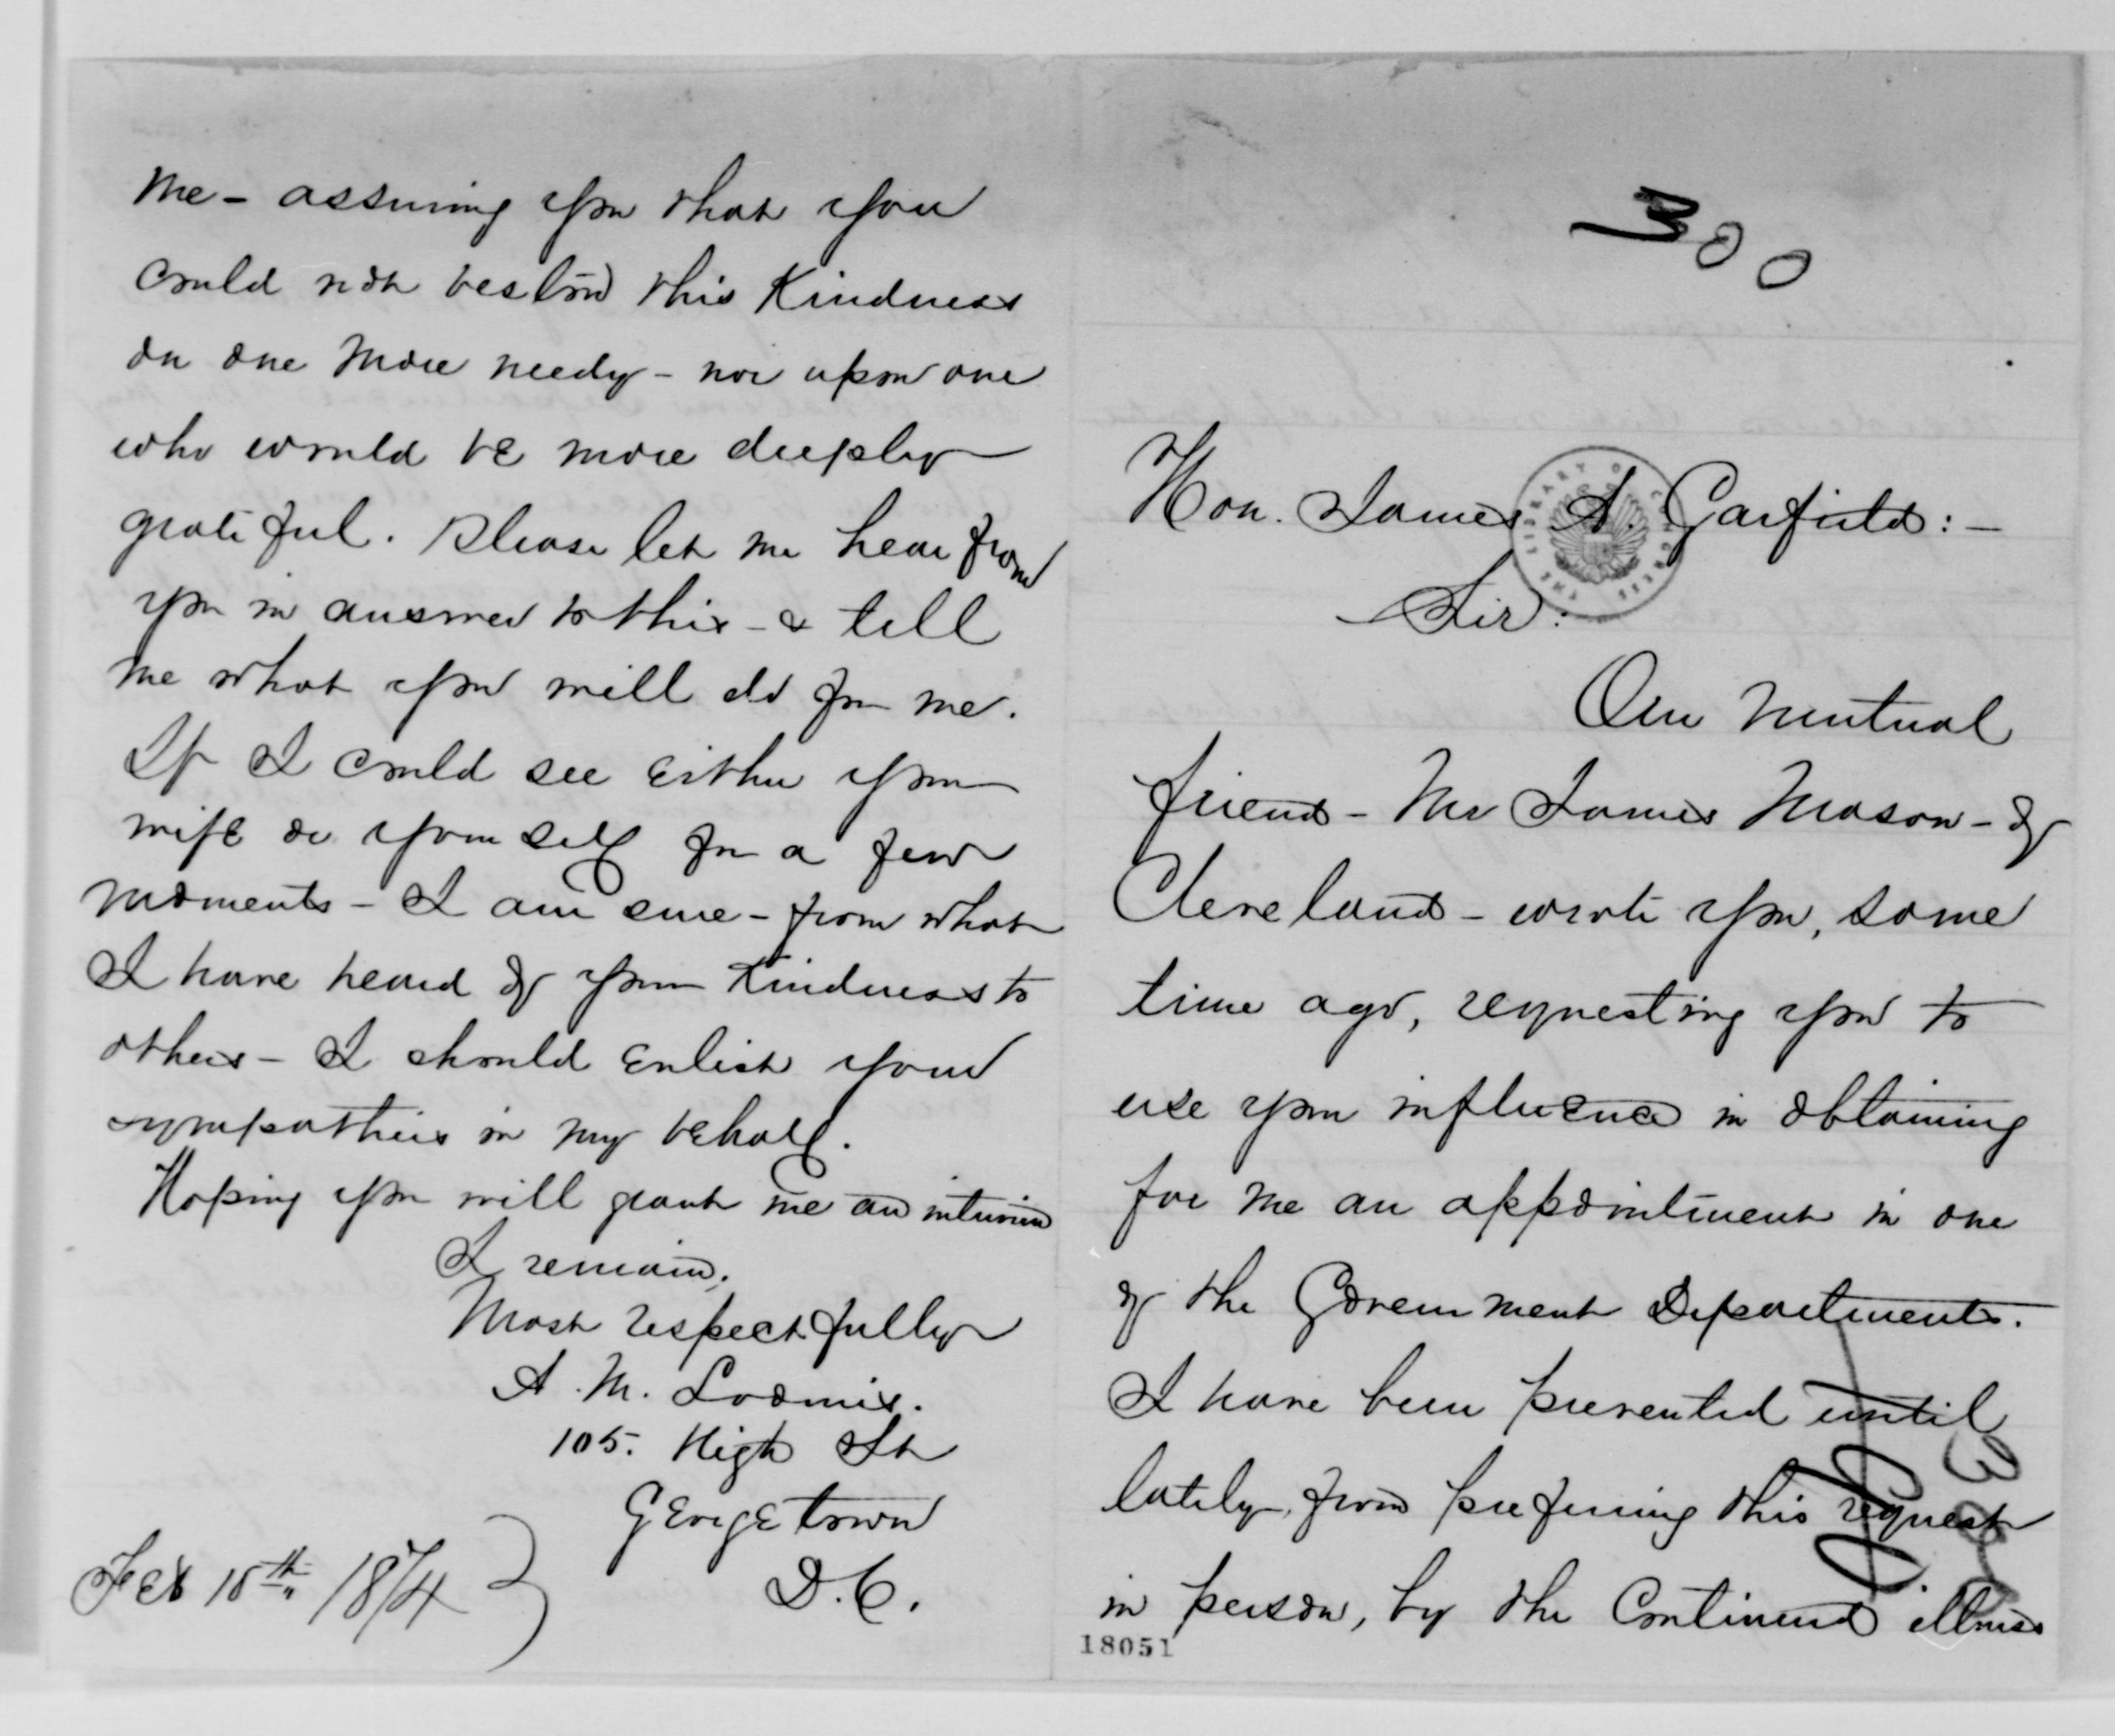 300
Hon. James A. Garfield: —
Sir:
Our mutual
friend - Mr James Mason - of
Cleveland - wrote you, some
time ago, requesting you to
use your influence in obtaining
for me an appointment in one
of the Government Departments.
I have been prevented until
lately, from preferring this request
in person, by the continued illness
18051
me - assuring you that you
could not bestow this Kindness
on one more needy - nor upon one
who would be more deeply
grateful. Please let me hear from
you in answer to this - & tell
me what you will do for me.
If I could see either your
wife or yourself for a few
moments - I am sure - from what
I have heard of your Kindness to
others - I should enlist your
sympathies in my behalf.
Hoping you will grant me an interview
I remain,
Most respectfully
A. M. Loomis.
105. High St
Georgetown
D. C.
Feb 15th 1874
THE LIBRARY OF CONGRESS